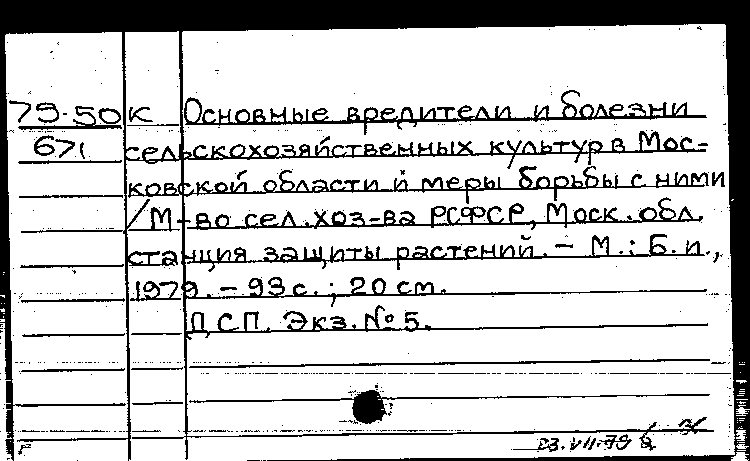 79-50 К Основные вредители и болезни
671 сельскохозяйственных культур в Мос-
ковской области и меры борьбы с ними
/М-во сел.хоз-ва РСФСР, Моск. обл.
станция защиты растений. – М.: Б.и.,
1979. – 93 с. ; 20 см.
ДСП. Экз. № 5.
23.VII.79